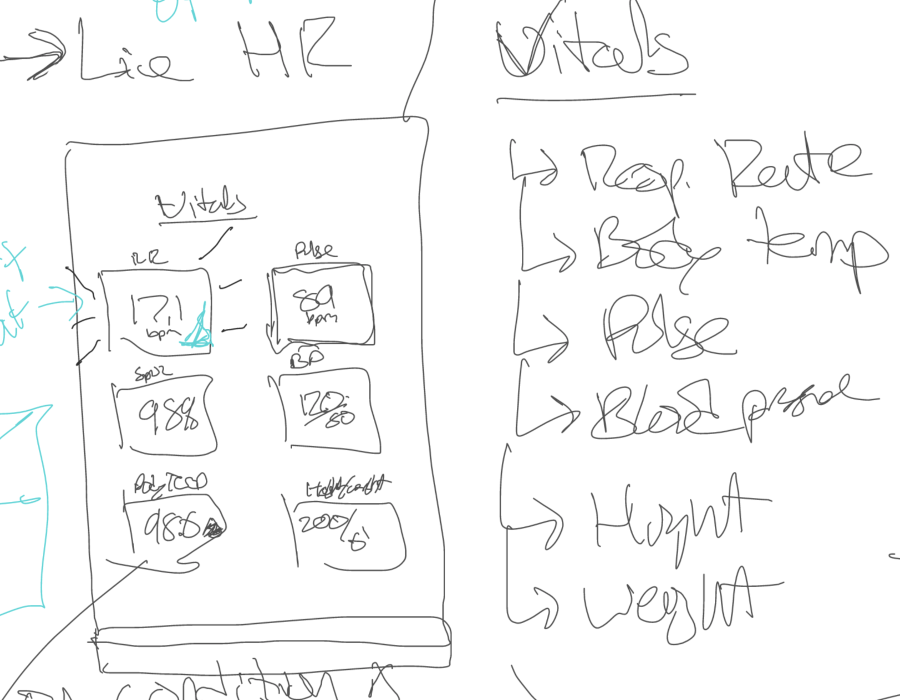 → Live HR
Vitals
RR
17.1
bpm
Pulse
89
bpm
SpO2
98%
BP
120/80
Body Temp
98.6
Height/weight
200/6'
Vitals
Resp. Rate
Body temp
Pulse
Blood pressure
Height
Weight
condition